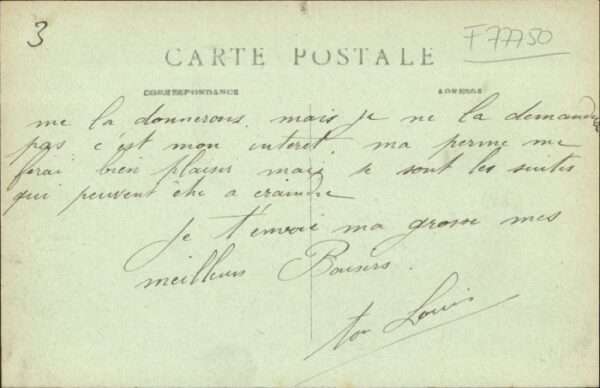 3
F77750
CARTE POSTALE
CORRESPONDANCE
ADRESSE
me la donnerons, mais je ne la demande
pas c'est mon interet. ma perme me
ferai bien plaisir mais se sont les suites
qui peuvent être a craindre
Je t'envoie ma grosse mes
meilleurs Baisers.
ton Louis